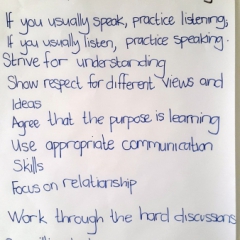 If you usually speak, practice listening,
If you usually listen, practice speaking.
Strive for understanding
Show respect for different views and
Ideas
Agree that the purpose is learning
Use appropriate communication
Skills
Focus on relationship
Work through the hard discussions